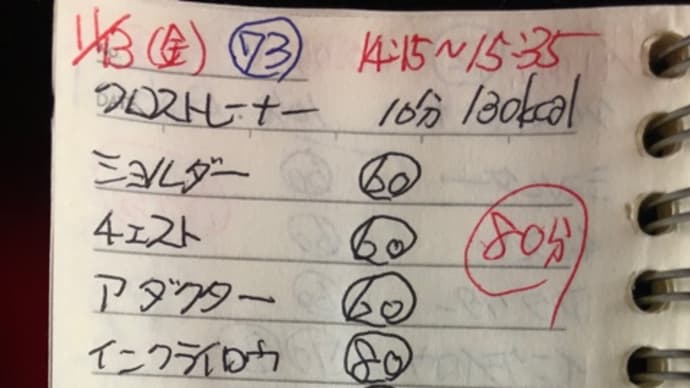 11/13(金) 73 14:15~15:35
クロストレーナー 10分 130kcal
ショルダー 60
チェスト 60 80分
アダクター 60
インクライロウ 80